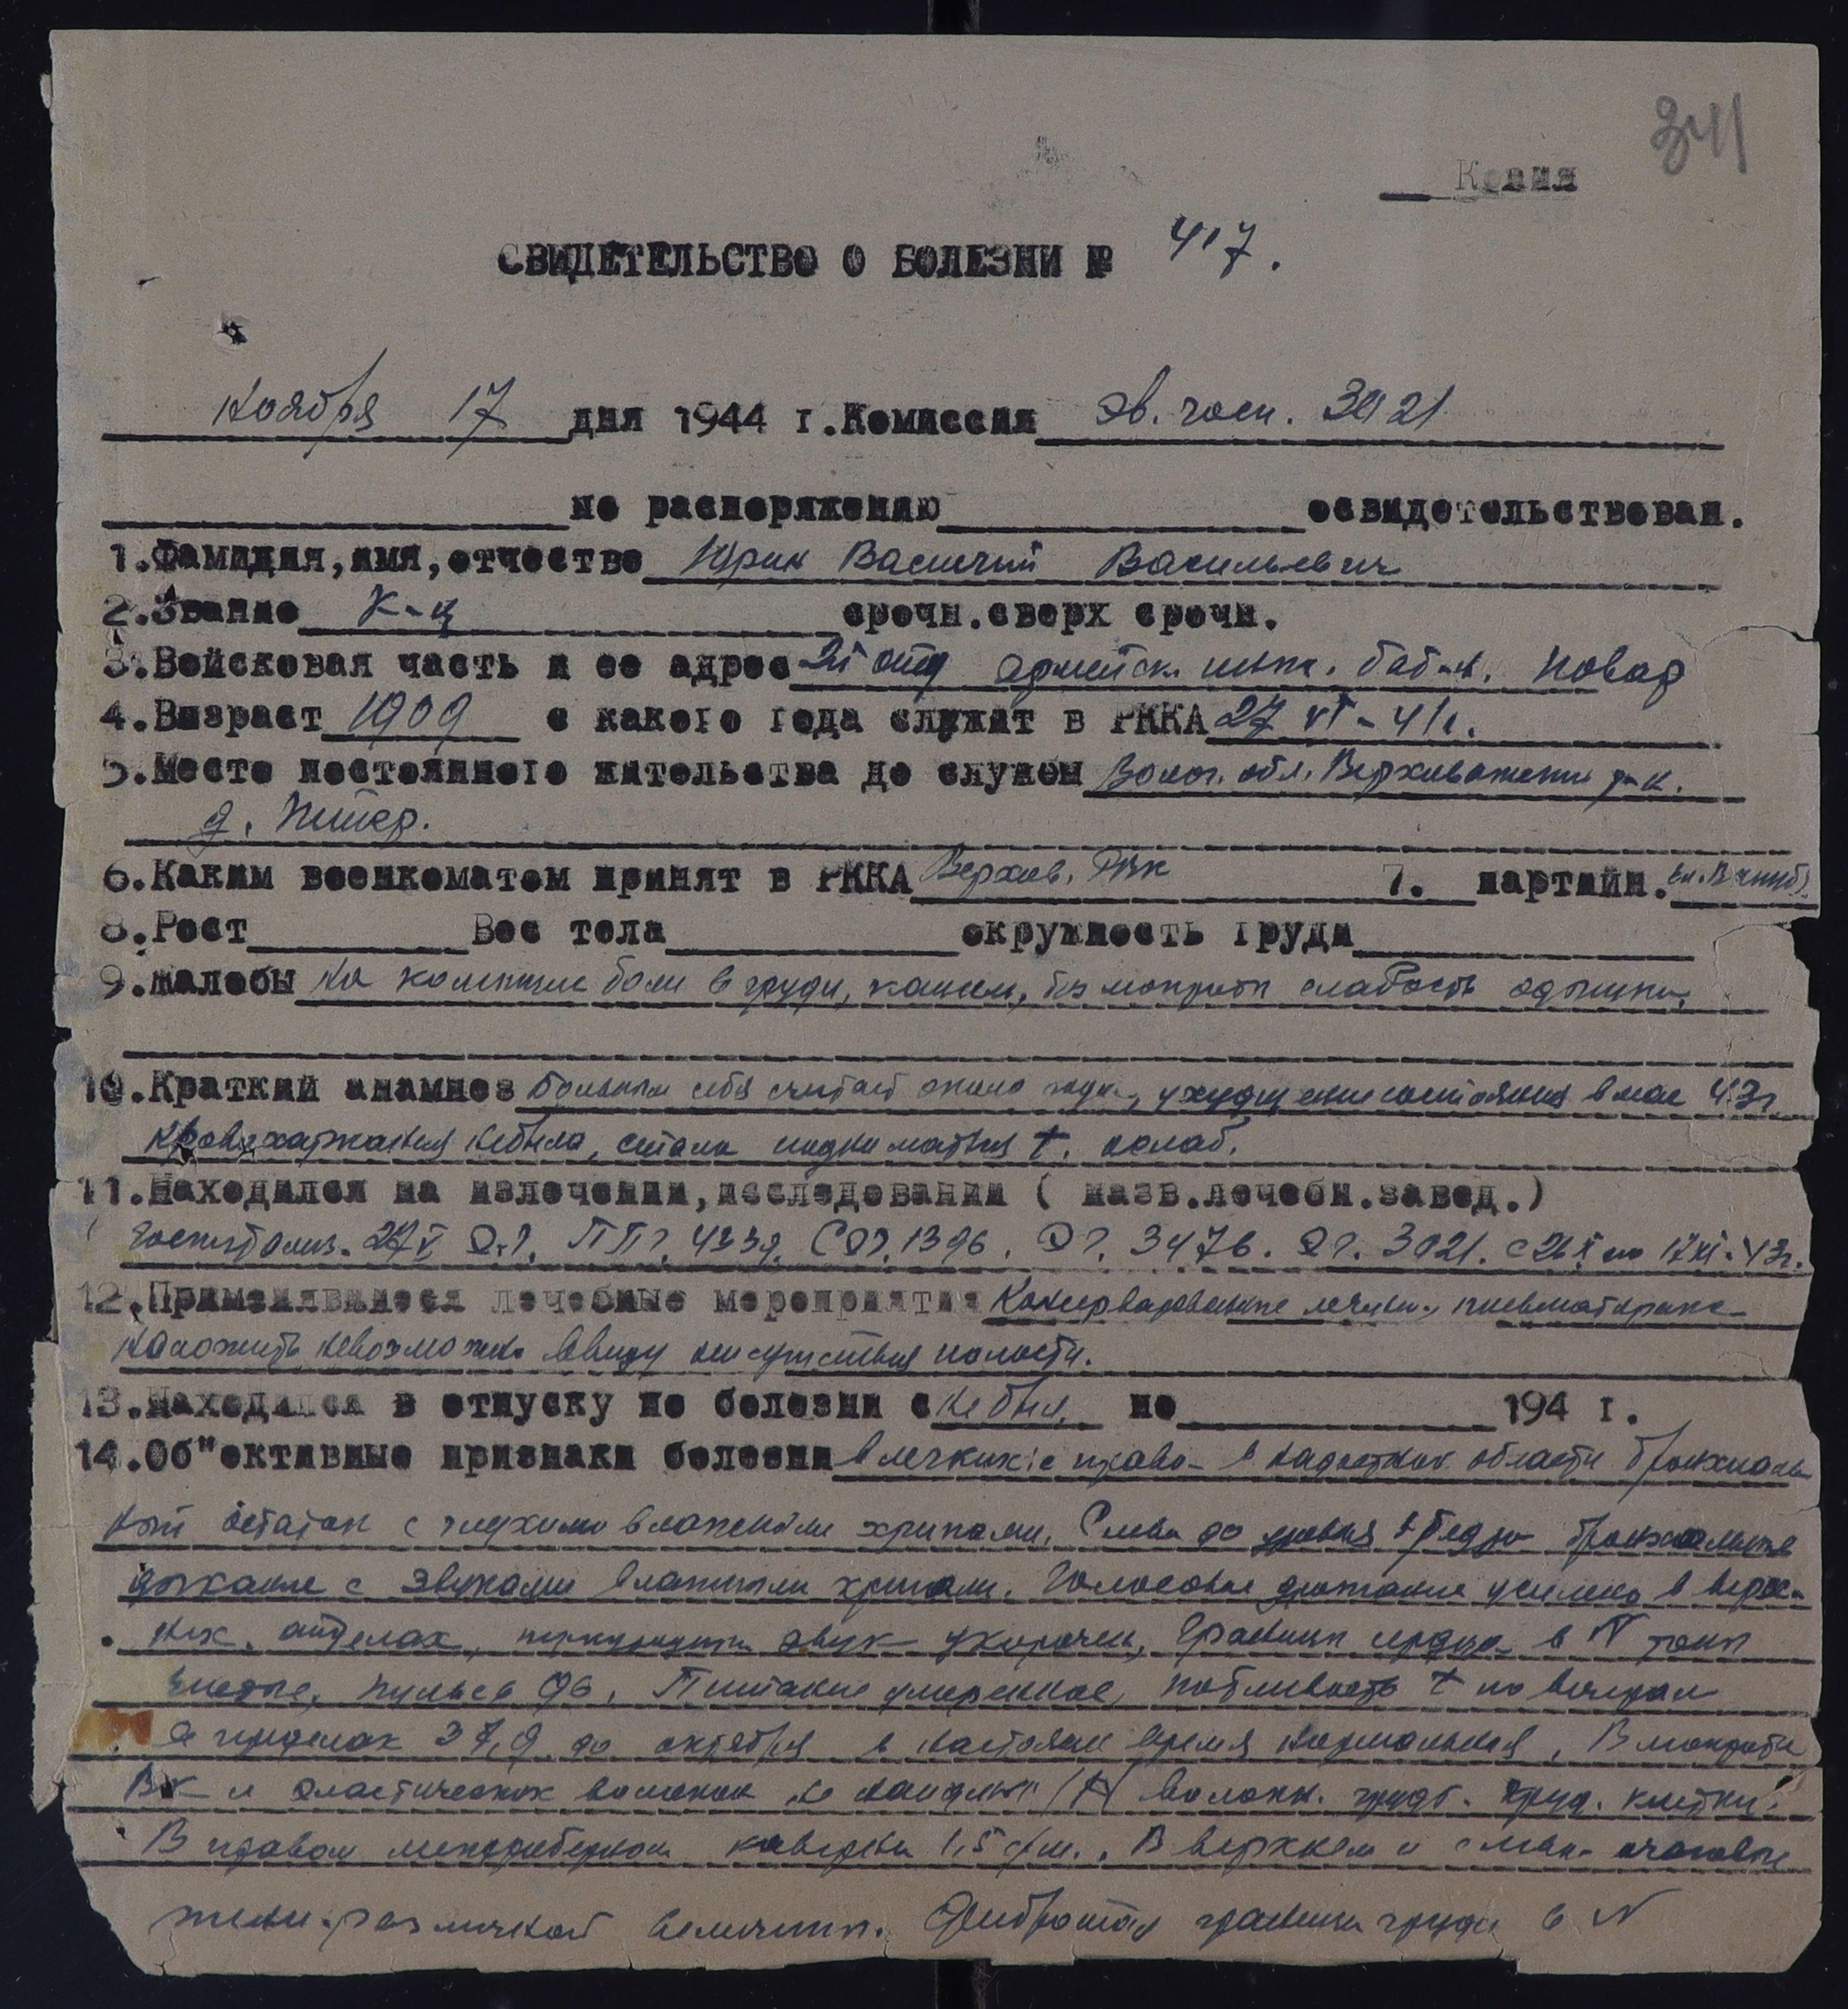 341
Копия
СВИДЕТЕЛЬСТВО О БОЛЕЗНИ № 417.
Ноября 17 дня 1944 г. Комиссия эв. госп. 3021
по распоряжению освидетельствован.
1. Фамилия, имя, отчество Юрин Василий Васильевич
2. Звание к-ц срочн. сверх срочн.
3. Войсковая часть и ее адрес 21 отд армейск. инж. бат-н. повар
4. Возраст 1909 с какого года служит в РККА 27 VI-41г.
5. Место постоянного жительства до службы Волог. обл. Верховажский р-н.
д. Питер.
6. Каким военкоматом принят в РККА Верхов. РВК 7. партийн.
8. Рост Вес тела окружность груди
9. Жалобы на колющие боли в груди, кашель, без мокроты слабость одышки.
10. Краткий анамнез больным себя считает около года, ухудшение состояния в мае 43г
кровохаркания не было, стала подниматься t. ослаб.
11. Находился на излечении, исследовании ( назв. лечебн. завед. )
Госпитализ. 27 V ППГ. 4339. 1396. ЭГ. 3476. ЭГ. 3021. с 26 X по 17 XI-43г.
12. Применявшиеся лечебные мероприятия Консервативное лечен., пневматоракс
наложить невозможно ввиду отсутствия полости.
13. Находился в отпуску по болезни с не был. по 194 г.
14. Об"ективные признаки болезни в легких: справа в области бронхиаль
ный с глухими влажными хрипами. Слева до бронхиальное
дыхание с звучными влажными хрипами. Голосовое дрожание усилено в верх-
них. отделах, звук укорочен, Границы сердца в N тоны
чистые, пульс 96. Питание умеренное, потливость t по вечерам
в пределах 37,9 до октября в настоящее время нормальная. В мокроте
ВК и эластических волокон не найдены
В правом межреберном каверна 1,5 с/м. В верхнем и слева очаговые
тени различной величины. границы груди в N